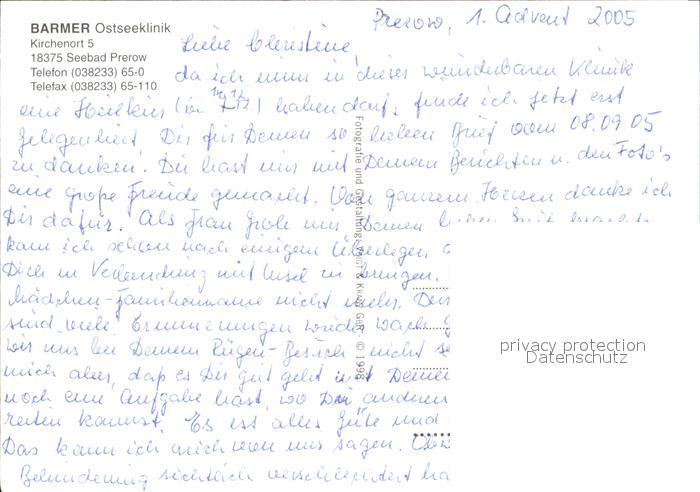 BARMER Ostseeklinik
Kirchenort 5
18375 Seebad Prerow
Telefon (038233) 65-0
Telefax (038233) 65-110
Prerow, 1. Advent 2005
Liebe Christine,
da ich nun in dieser wunderbaren Klinik
eine Heilkur (in haben darf, finde ich jetzt erst
Gelegenheit, Dir für Deinen so lieben Brief vom 08.09.05
zu danken. Du hast uns mit Deinen Berichten u. den Foto's
eine große Freude gemacht. Von ganzem Herzen danke ich
Dir dafür. Als Frau mir Deinen lieben Brief
kam ich schon nach einigem Überlegen
Dich in Verbindung mit Insel zu bringen.
Mädchen-Familienname nicht mehr.
sind viele Erinnerungen wieder wach
wir uns bei Deinem Rügen-Besuch nicht
mich aber, daß es Dir gut geht und
noch eine Aufgabe hast, wo Du anderen
raten kannst. Es ist alles Güte und
Das kann ich auch von uns sagen.
Behinderung sichtlich verschlechtert
Fotografie und Gestaltung: VOIGT & KRANZ GbR © 1998
privacy protection
Datenschutz